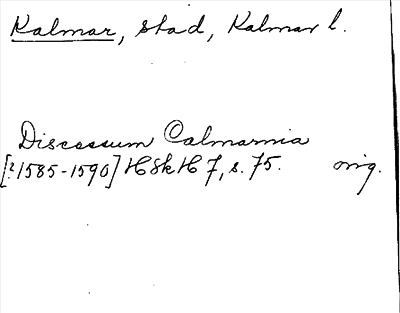 Kalmar, stad, Kalmar l.
Discessum Calmarnia
[?1585-1590] HSkH 7, s. 75. orig.